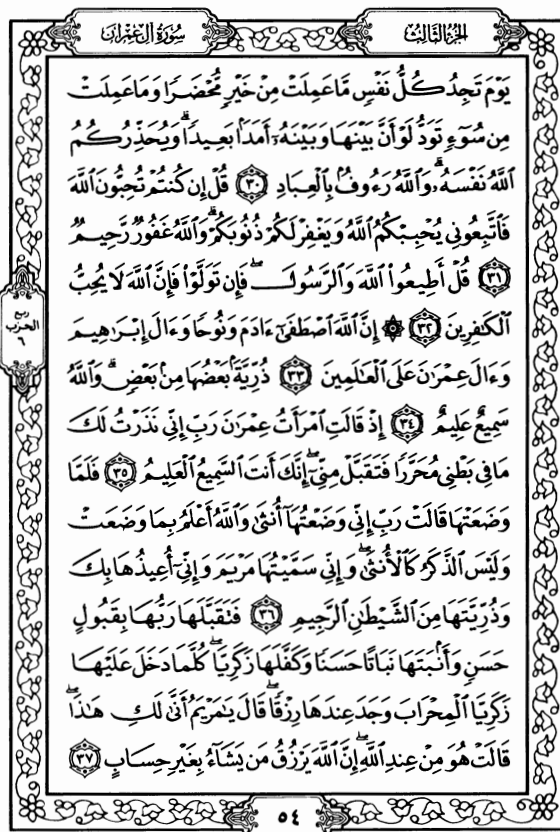 سُورَةُ آلِ عِمْرَانَ
الجُزْءُ الثَّالِثُ
يَوْمَ تَجِدُ كُلُّ نَفْسٍ مَّا عَمِلَتْ مِنْ خَيْرٍ مُّحْضَرًا وَمَا عَمِلَتْ
مِن سُوٓءٍ تَوَدُّ لَوْ أَنَّ بَيْنَهَا وَبَيْنَهُۥٓ أَمَدَۢا بَعِيدًاۗ وَيُحَذِّرُكُمُ
ٱللَّهُ نَفْسَهُۥۗ وَٱللَّهُ رَءُوفُۢ بِٱلْعِبَادِ ٣٠ قُلْ إِن كُنتُمْ تُحِبُّونَ ٱللَّهَ
فَٱتَّبِعُونِي يُحْبِبْكُمُ ٱللَّهُ وَيَغْفِرْ لَكُمْ ذُنُوبَكُمْۗ وَٱللَّهُ غَفُورٌ رَّحِيمٌ
٣١ قُلْ أَطِيعُوا۟ ٱللَّهَ وَٱلرَّسُولَۖ فَإِن تَوَلَّوْا۟ فَإِنَّ ٱللَّهَ لَا يُحِبُّ
ٱلْكَٰفِرِينَ ٣٢ ۞ إِنَّ ٱللَّهَ ٱصْطَفَىٰٓ ءَادَمَ وَنُوحًا وَءَالَ إِبْرَٰهِيمَ
وَءَالَ عِمْرَٰنَ عَلَى ٱلْعَٰلَمِينَ ٣٣ ذُرِّيَّةَۢ بَعْضُهَا مِنۢ بَعْضٍۗ وَٱللَّهُ
سَمِيعٌ عَلِيمٌ ٣٤ إِذْ قَالَتِ ٱمْرَأَتُ عِمْرَٰنَ رَبِّ إِنِّي نَذَرْتُ لَكَ
مَا فِي بَطْنِي مُحَرَّرًا فَتَقَبَّلْ مِنِّيٓۖ إِنَّكَ أَنتَ ٱلسَّمِيعُ ٱلْعَلِيمُ ٣٥ فَلَمَّا
وَضَعَتْهَا قَالَتْ رَبِّ إِنِّي وَضَعْتُهَآ أُنثَىٰ وَٱللَّهُ أَعْلَمُ بِمَا وَضَعَتْ
وَلَيْسَ ٱلذَّكَرُ كَٱلْأُنثَىٰۖ وَإِنِّي سَمَّيْتُهَا مَرْيَمَ وَإِنِّيٓ أُعِيذُهَا بِكَ
وَذُرِّيَّتَهَا مِنَ ٱلشَّيْطَٰنِ ٱلرَّجِيمِ ٣٦ فَتَقَبَّلَهَا رَبُّهَا بِقَبُولٍ
حَسَنٍ وَأَنۢبَتَهَا نَبَاتًا حَسَنًا وَكَفَّلَهَا زَكَرِيَّاۖ كُلَّمَا دَخَلَ عَلَيْهَا
زَكَرِيَّا ٱلْمِحْرَابَ وَجَدَ عِندَهَا رِزْقًاۖ قَالَ يَٰمَرْيَمُ أَنَّىٰ لَكِ هَٰذَاۖ
قَالَتْ هُوَ مِنْ عِندِ ٱللَّهِۖ إِنَّ ٱللَّهَ يَرْزُقُ مَن يَشَآءُ بِغَيْرِ حِسَابٍ ٣٧
ربع
الحزب
٦
٥٤